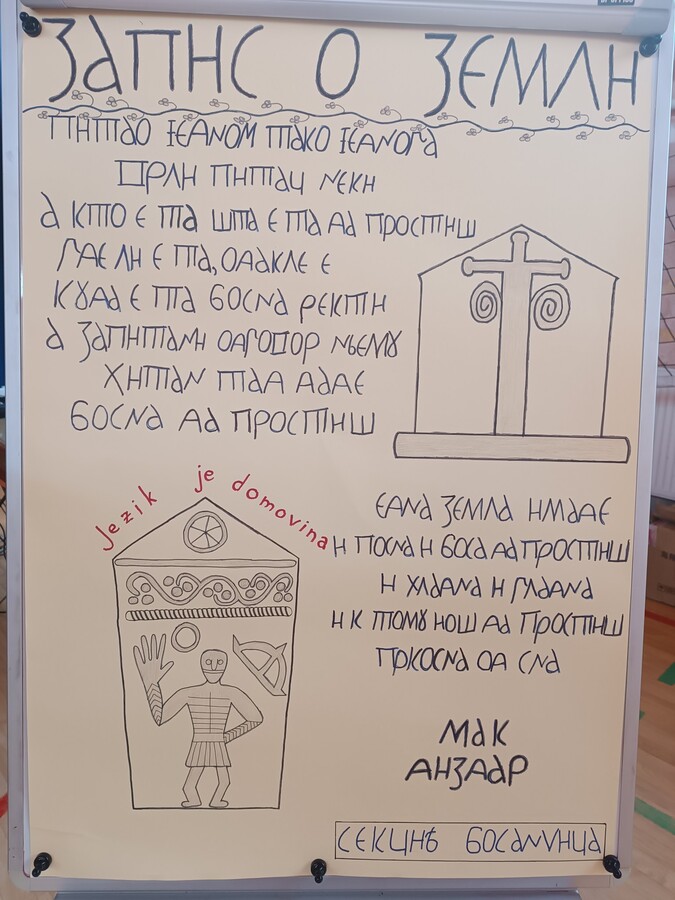 ЗАПИС О ЗЕМЛИ
ПИТАО ІЄДНОМ ТАКО ІЄДНОГА
ВРЛИ ПИТАЧ НЕКИ
А КТО Є ТА ШТА Є ТА ДА ПРОСТИШ
ГДЕ ЛИ Є ТА, ОДАКЛЕ Є
КȢДА Є ТА БОСНА РЕКТИ
А ЗАПИТАНИ ОДГОВОР ЊЕМȢ
ХИТАН ТАД ДАДЕ
БОСНА ДА ПРОСТИШ
Jezik je domovina
ЕДНА ЗЕМЛА ИМАДЕ
И ПОСНА И БОСА ДА ПРОСТИШ
И ХЛАДНА И ГЛАДНА
И К ТОМȢ ИОШ ДА ПРОСТИШ
ПРКОСНА ОД СНА
МАК
ДИЗДАР
СЕКЦИѢ БОСАНЧИЦА